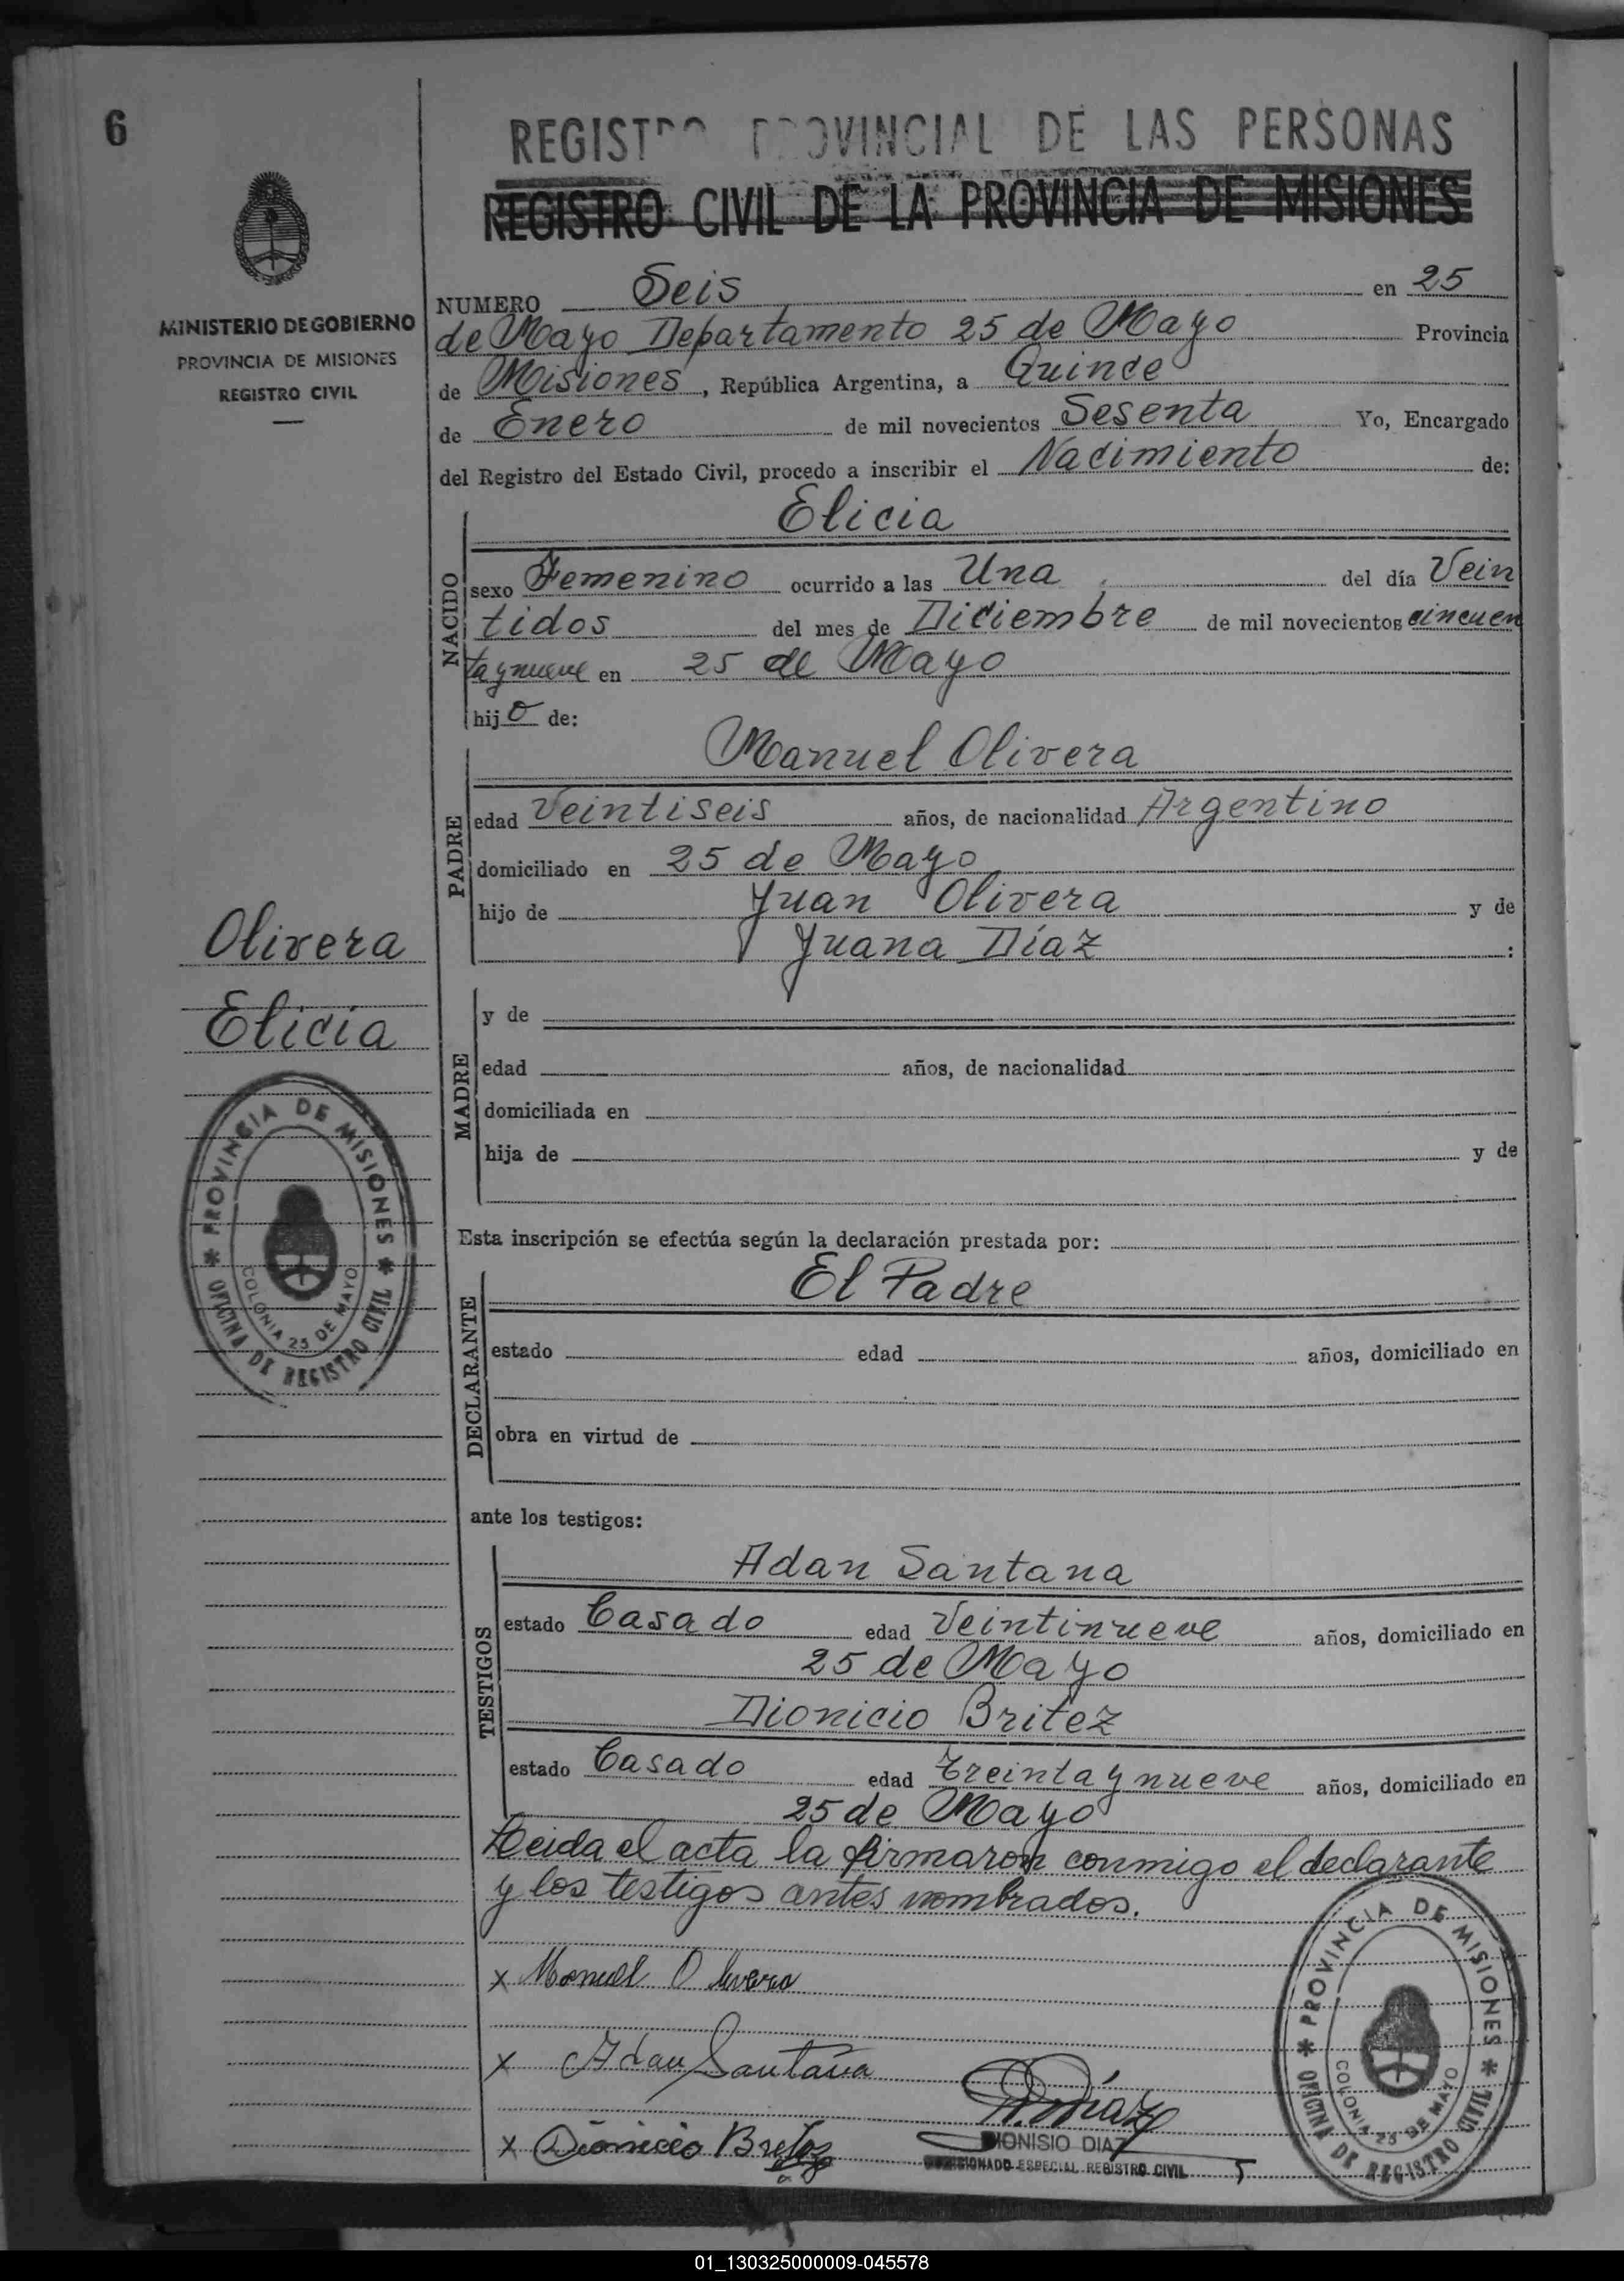 6
REGISTRO PROVINCIAL DE LAS PERSONAS
REGISTRO CIVIL DE LA PROVINCIA DE MISIONES
MINISTERIO DE GOBIERNO
PROVINCIA DE MISIONES
REGISTRO CIVIL
NUMERO Seis en 25
de Mayo Departamento 25 de Mayo Provincia
de Misiones, República Argentina, a Quince
de Enero de mil novecientos Sesenta Yo, Encargado
del Registro del Estado Civil, procedo a inscribir el Nacimiento de:
NACIDO
Elicia
sexo Femenino ocurrido a las Una del día Vein
tidos del mes de Diciembre de mil novecientos cincuen
ta y nueve en 25 de Mayo
hijo de:
PADRE
Manuel Olivera
edad Veintiseis años, de nacionalidad Argentino
domiciliado en 25 de Mayo
hijo de Juan Olivera y de
Juana Díaz :
Olivera
Elicia
MADRE
y de
edad años, de nacionalidad
domiciliada en
hija de y de
PROVINCIA DE MISIONES
OFICINA DE REGISTRO CIVIL
COLONIA 25 DE MAYO
Esta inscripción se efectúa según la declaración prestada por:
DECLARANTE
El Padre
estado edad años, domiciliado en
obra en virtud de
ante los testigos:
TESTIGOS
Adan Santana
estado Casado edad Veintinueve años, domiciliado en
25 de Mayo
Dionicio Britez
estado Casado edad Treinta y nueve años, domiciliado en
25 de Mayo
Leida el acta la firmaron conmigo el declarante
y los testigos antes nombrados.
x Manuel Olivera
x Adan Santana
x Dionicio Britez
D. Díaz
DIONISIO DIAZ
COMISIONADO ESPECIAL REGISTRO CIVIL
PROVINCIA DE MISIONES
OFICINA DE REGISTRO CIVIL
COLONIA 25 DE MAYO
01_130325000009-045578